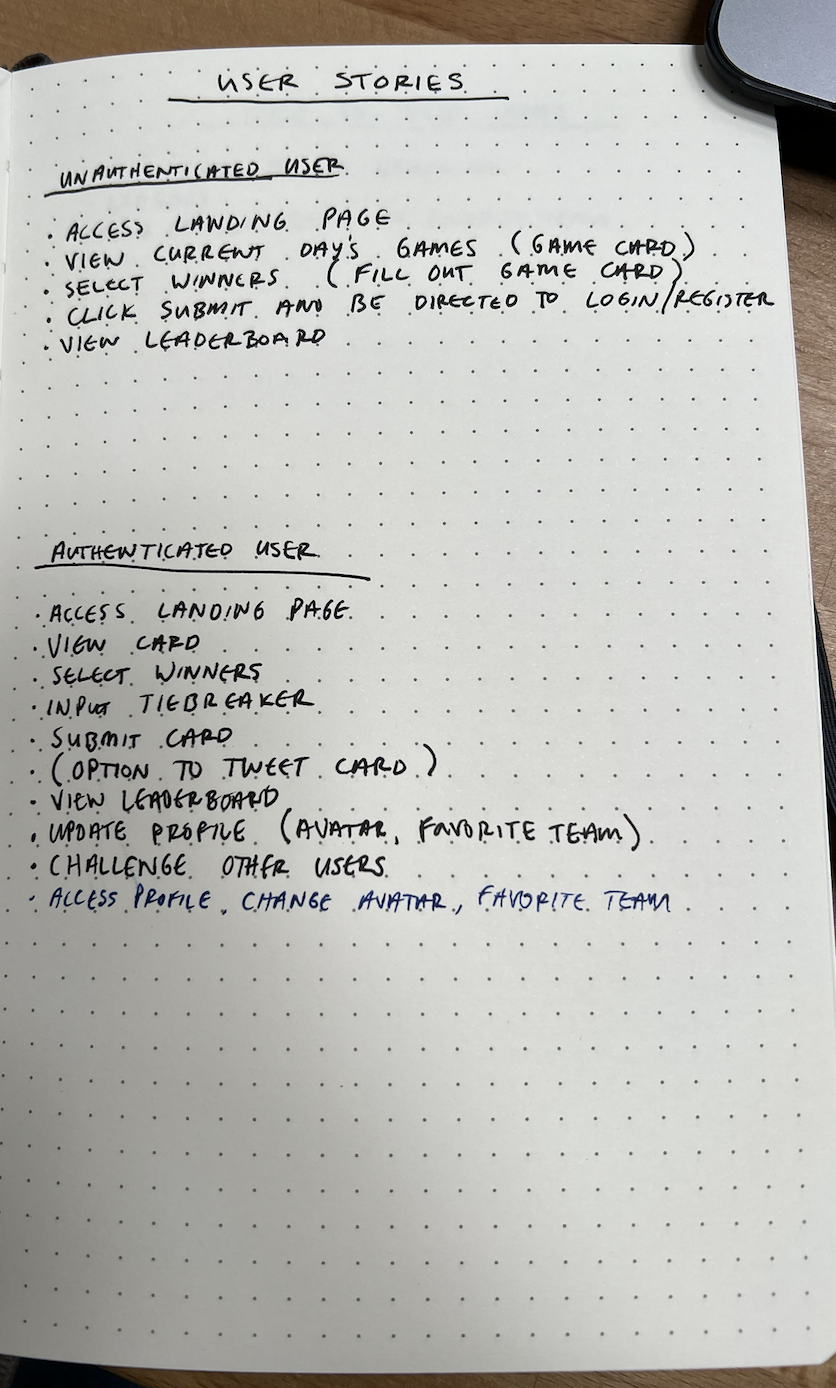 USER STORIES
UNAUTHENTICATED USER
· ACCESS LANDING PAGE
· VIEW CURRENT DAY'S GAMES (GAME CARD)
· SELECT WINNERS (FILL OUT GAME CARD)
· CLICK SUBMIT AND BE DIRECTED TO LOGIN/REGISTER
· VIEW LEADERBOARD
AUTHENTICATED USER
· ACCESS LANDING PAGE
· VIEW CARD
· SELECT WINNERS
· INPUT TIEBREAKER
· SUBMIT CARD
· (OPTION TO TWEET CARD)
· VIEW LEADERBOARD
· UPDATE PROFILE (AVATAR, FAVORITE TEAM)
· CHALLENGE OTHER USERS
· ACCESS PROFILE, CHANGE AVATAR, FAVORITE TEAM